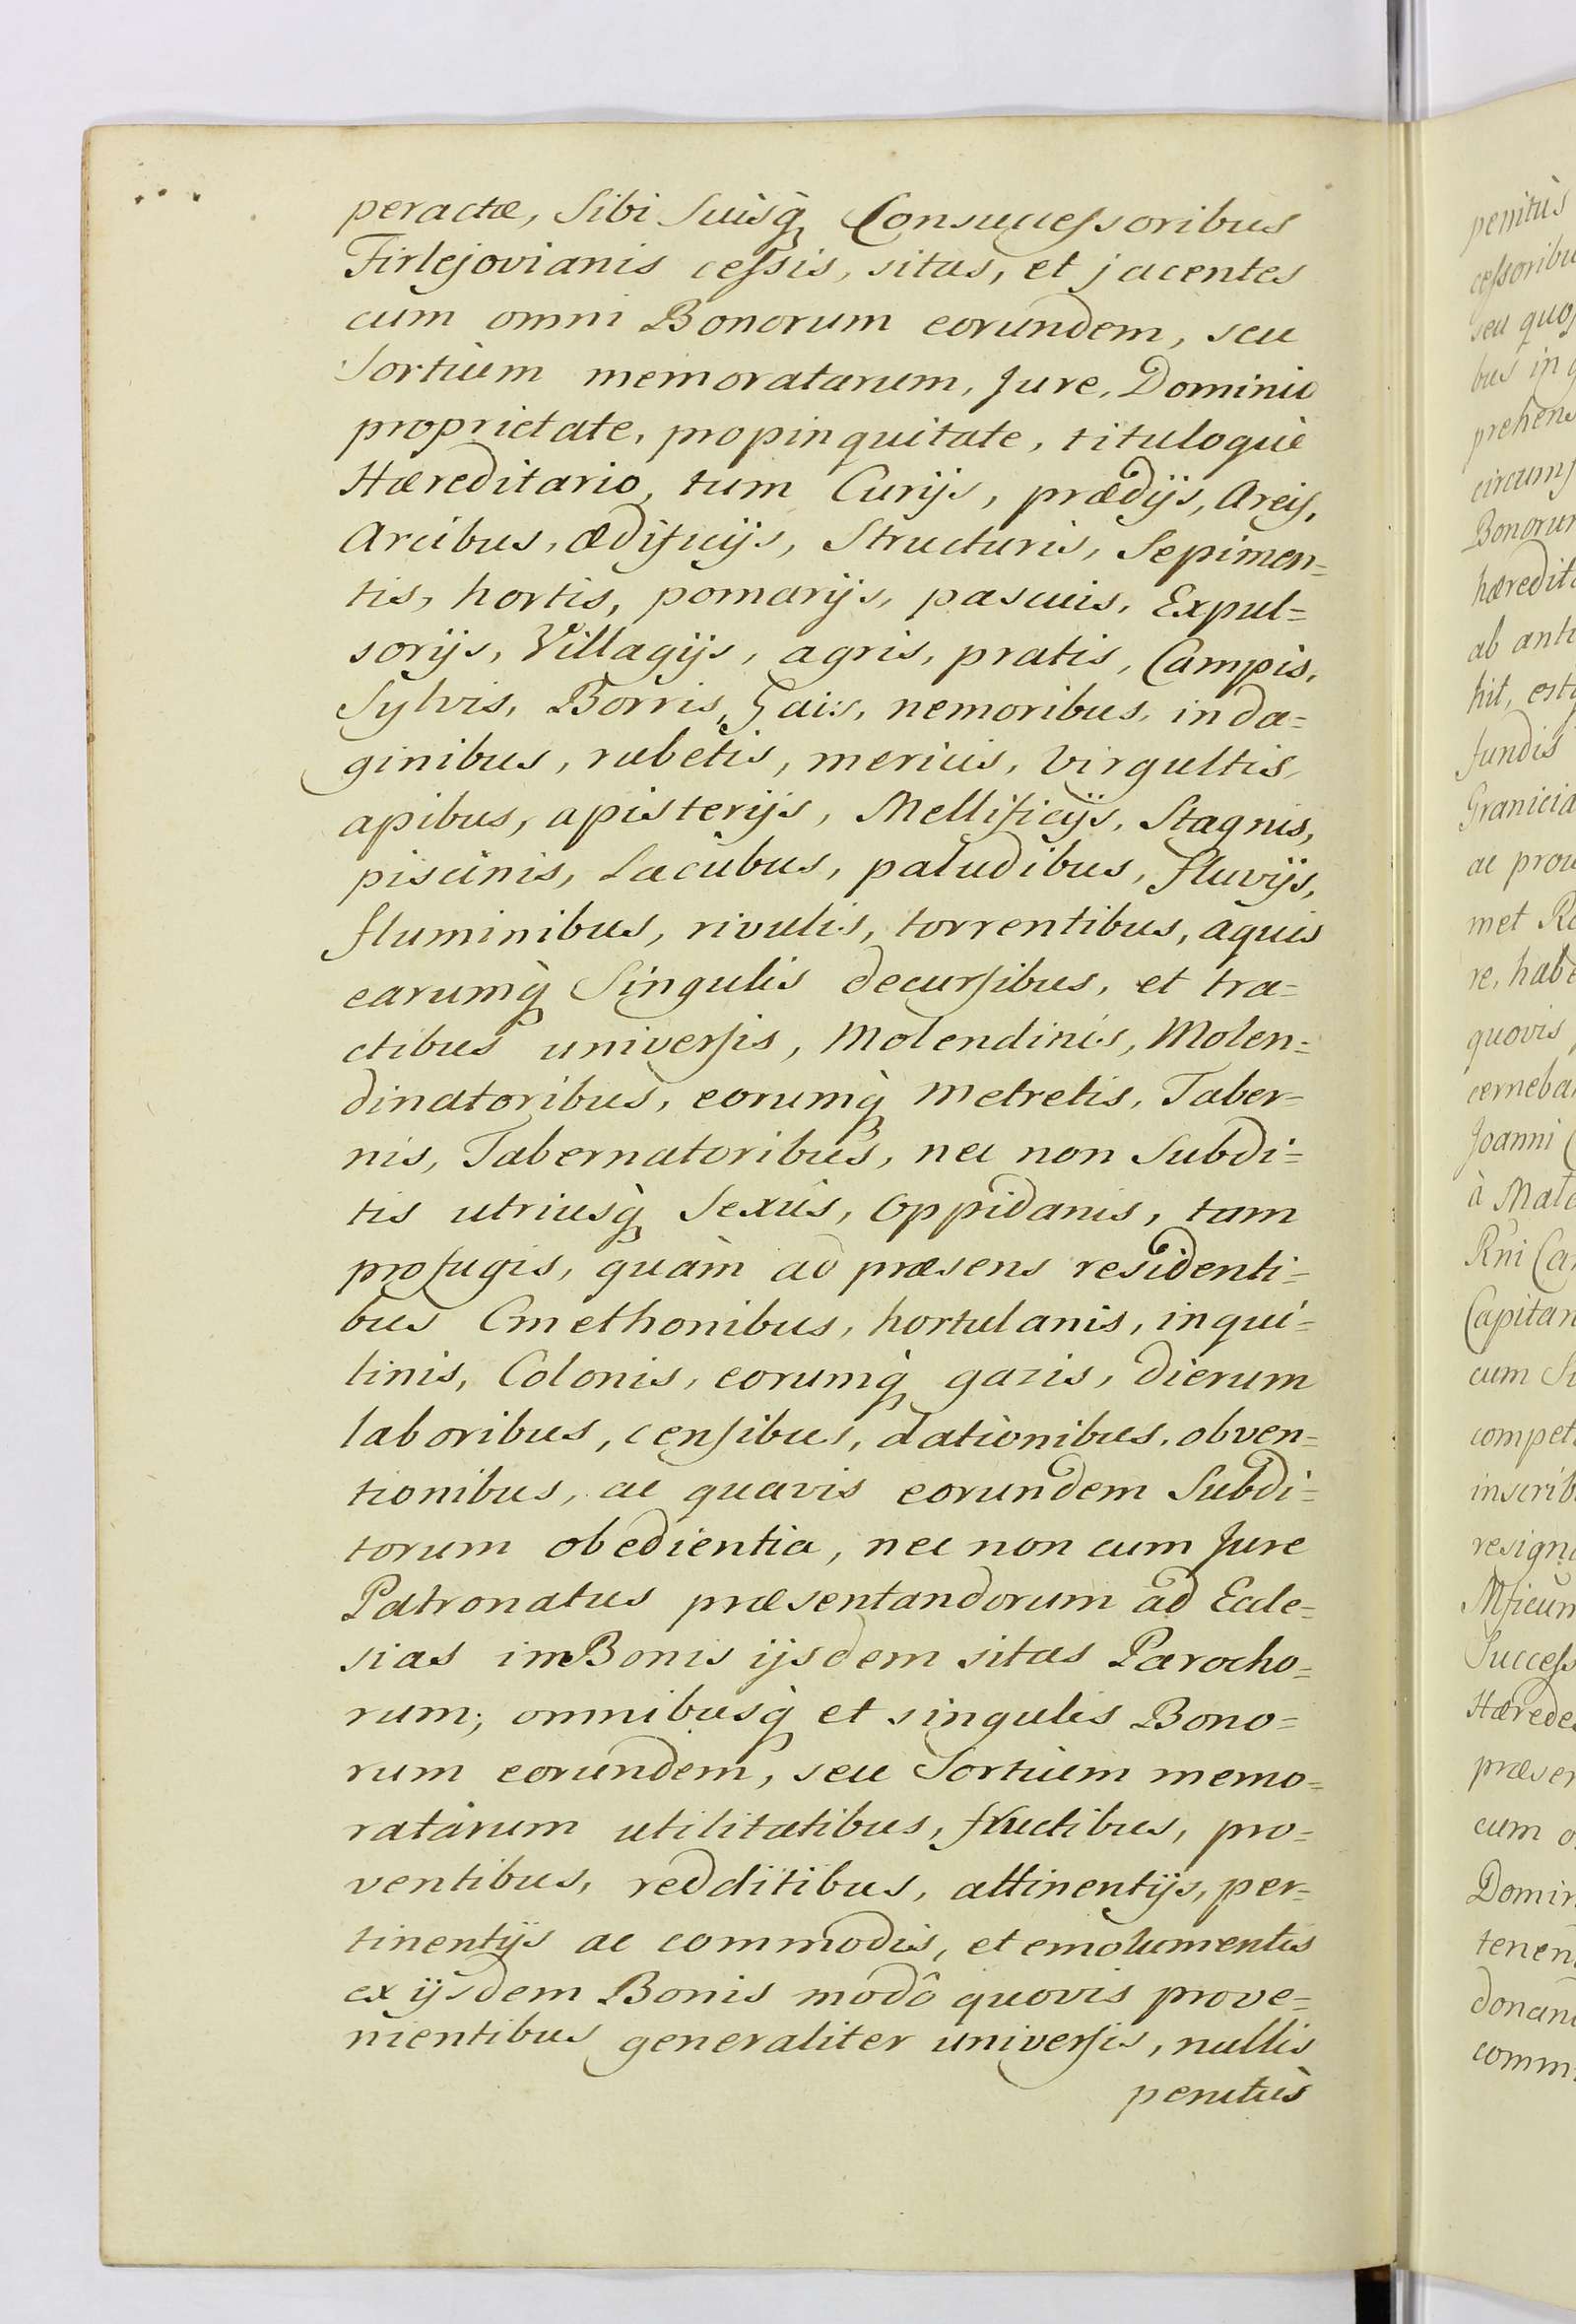 peractæ, Sibi Suisq̀ Consuccessoribus
Firlejovianis cessis, sitas, et jacentes
cum omni Bonorum eorundem, seu
Sortium memoratarum, Jure, Dominio
proprietate, propinquitate, tituloque
Hæreditario, tum Curijs, prædijs, Areis,
Arcibus, ædificijs, Structuris, Sepimen=
tis, hortis, pomarijs, pascuis, Expul=
sorijs, Villagijs, agris, pratis, Campis,
Sylvis, Borris, Gais, nemoribus, inda=
ginibus, rubetis, mericis, Virgultis,
apibus, apisterijs, Mellificijs, Stagnis,
piscinis, Lacubus, paludibus, fluvijs,
fluminibus, rivulis, torrentibus, aquis
earumq̀ Singulis decursibus, et tra=
ctibus universis, Molendinis, Molen=
dinatoribus, eorumq̀ metretis, Taber=
nis, Tabernatoribus, nec non Subdi=
tis utriusq̀ Sexûs, Oppidanis, tam
profugis, quàm ad præsens residenti=
bus Cmethonibus, hortulanis, inqui=
linis, Colonis, eorumq̀ gazis, dierum
laboribus, censibus, dationibus, obven=
tionibus, ac quavis eorundem Subdi=
torum obedientia, nec non cum Jure
Patronatus præsentandorum ad Eccle=
sias in Bonis ijsdem sitas Parocho=
rum; omnibusq̀ et singulis Bono=
rum eorundem, seu Sortium memo=
ratarum utilitatibus, fructibus, pro=
ventibus, redditibus, attinentijs, per=
tinentijs ac commodis, et emolumentis
ex ijsdem Bonis modô quovis prove=
nientibus generaliter universis, nullis
penitùs
penitùs
cessoribu
seu quos
bus in q
prehens
circums
Bonorum
hæredita
ab anti
hit, est
fundis
Granicia
ac prou
met Re
re, habe
quovis
cerneba
Joanni
à Mat
Rni Ca
Capitan
cum S
compet
inscrib
resigna
Mficum
Success
Hærede
præsen
cum o
Domin
tenen
donan
comm